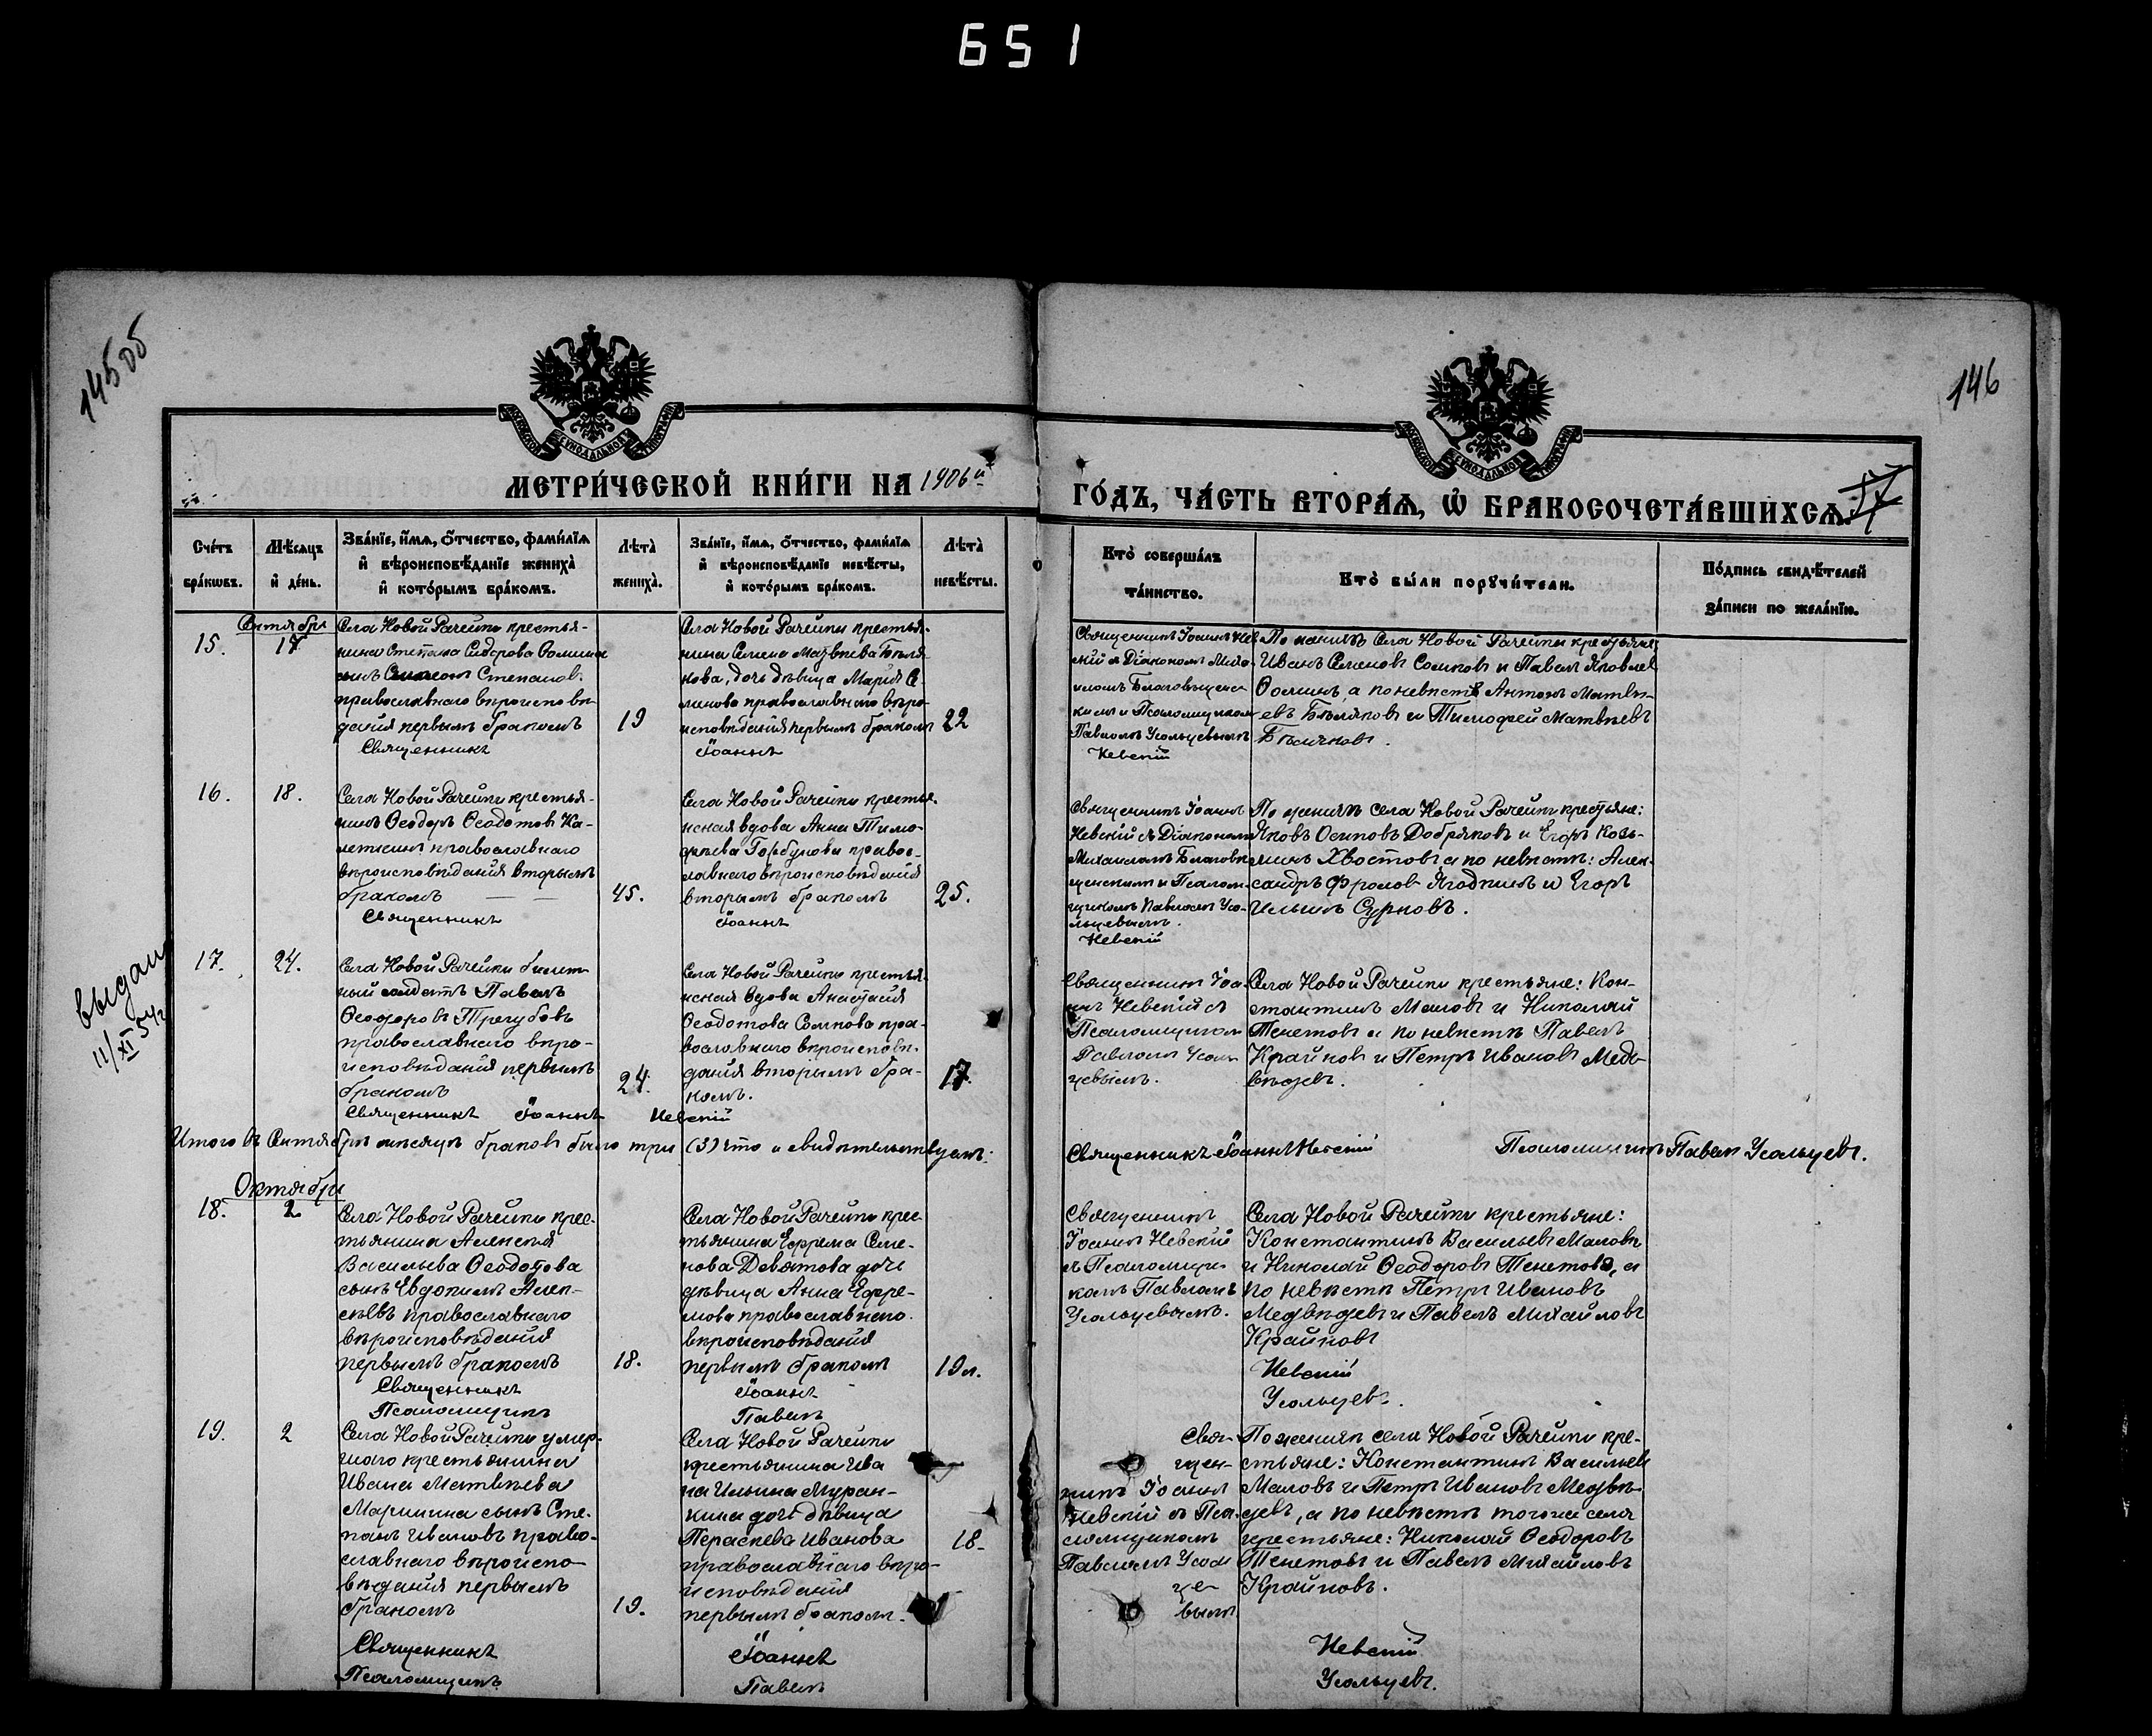 651
145 об
146
МЕТРИ́ЧЕСКОЙ КНИ́ГИ НА 1906й
ГО́ДЪ, ЧА́СТЬ ВТОРА́Ѧ, Ѡ҆ БРАКОСОЧЕТА́ВШИХСѦ.
57
Сче́тъ бра́кѡвъ.
Мѣ́сѧцъ и҆ де́нь.
Зва́нїе, и҆́мѧ, ѻ҆́тчество, фами́лїѧ и҆ вѣроисповѣ́данїе жениха̀ и҆ кото́рымъ бра́комъ.
Лѣта̀ жениха̀.
Зва́нїе, и҆́мѧ, ѻ҆́тчество, фами́лїѧ и҆ вѣроисповѣ́данїе невѣ́сты, и҆ кото́рымъ бра́комъ.
Лѣта̀ невѣ́сты.
Кто̀ соверша́лъ та́инство.
Кто̀ бы́ли порꙋчи́тели.
По́дпись свидѣ́телей за́писи по жела́нїю.
Сентября
15.
17
Села Новой Рачейки крестья-
нина Степана Сидорова Ѳомина
сынъ Симеонъ Степановъ
православнаго вѣроисповѣ-
данія первымъ бракомъ
Священникъ
19
Села Новой Рачейки крестья-
нина Семена Матвѣева Бѣля-
кова, дочь дѣвица Марія Се-
менова православнаго вѣро-
исповѣданія первымъ бракомъ
Іоаннъ
22
Священникъ Іоаннъ Нев-
скій съ Діакономъ Миха-
иломъ Благовѣщенс-
кимъ и Псаломщикомъ
Павломъ Усольцевымъ
Невскій
По женихѣ Села Новой Рачейки крестьяне
Иванъ Семеновъ Сомковъ и Павелъ Яковлевъ
Ѳоминъ а по невѣстѣ Антонъ Матвѣ-
евъ Бѣляковъ и Тимофей Матвѣевъ
Бѣляковъ.
16.
18.
Села Новой Рачейки крестья-
нинъ Ѳеодоръ Ѳеодотовъ Ка-
православнаго
вѣроисповѣданія вторымъ
бракомъ
Священникъ
45.
Села Новой Рачейки крестья-
нская вдова Анна Тимо-
фѣева Горбунова правос-
лавнаго вѣроисповѣданія
вторымъ бракомъ
Іоаннъ
25.
Священникъ Іоаннъ
Невскій съ Діакономъ
Михаиломъ Благовѣ-
щенскимъ и Псалом-
щикомъ Павломъ Усо-
льцевымъ.
Невскій
По женихѣ села Новой Рачейки крестьяне:
Яковъ Осиповъ Добряковъ и Егоръ Козь-
минъ Хвостовъ а по невѣстѣ: Алек-
сандръ Фроловъ Ягодкинъ и Егоръ
Ильинъ Сурковъ.
17.
24.
Села Новой Рачейки билет-
ный солдатъ Павелъ
Ѳеодоровъ Трегубовъ
православнаго вѣро-
исповѣданія первымъ
бракомъ
24.
Села Новой Рачейки крестья-
нская вдова Анастасія
Ѳеодотова Сомкова пра-
вославнаго вѣроисповѣ-
данія вторымъ бра-
комъ.
17.
Священникъ Іоанн Невскій
Священникъ Іоа-
ннъ Невскій съ
Псаломщикомъ
Павломъ Усоль-
цевымъ.
Села Новой Рачейки крестьяне: Кон-
стантинъ Маловъ и Николай
Тенетовъ а по невѣстѣ Павелъ
Крайковъ и Петръ Ивановъ Медь-
вѣдевъ.
выдан
11/XI 54г
Итого въ Сентябрѣ мѣсяцѣ браковъ было три (3) что и свидѣтельствуемъ:
Священникъ Іоаннъ Невскій
Псаломщикъ Павелъ Усольцевъ.
Октября
18.
2
Села Новой Рачейки крес-
тьянина Алексѣя
Васильева Ѳеодотова
сынъ Евдокимъ Алек-
сѣевъ православнаго
вѣроисповѣданія
первымъ бракомъ
Священникъ
Псаломщикъ
18.
Села Новой Рачейки крес-
тьянина Ефрема Семе-
нова Девятова дочь
дѣвица Анна Ефре-
мова православнаго
вѣроисповѣданія
первымъ бракомъ
Іоаннъ
Павелъ
19л.
Священникъ
Іоаннъ Невскій
съ Псаломщи-
комъ Павломъ
Усольцевымъ.
Села Новой Рачейки крестьяне:
Константинъ Васильевъ Маловъ
и Николай Ѳеодоровъ Тенетовъ, а
по невѣстѣ Петръ Ивановъ
Медвѣдевъ и Павелъ Михайловъ
Крайковъ
Невскій
Усольцевъ.
19.
2
Села Новой Рачейки умер-
шаго крестьянина
Ивана Матвѣева
Маришина сынъ Сте-
панъ Ивановъ право-
славнаго вѣроиспо-
вѣданія первымъ
бракомъ
Священникъ
Псаломщикъ
19.
Села Новой Рачейки
крестьянина Ива
на Ильина Муран-
кина дочь дѣвица
Параскева Иванова
православнаго вѣро-
исповѣданія
первымъ бракомъ.
Іоаннъ
Павелъ
18.
Свя-
щен-
никъ Іоаннъ
Невскій съ Пса-
ломщикомъ
Павломъ Усоль
це-
вымъ
По женихѣ села Новой Рачейки кре-
стьяне: Константинъ Васильевъ
Маловъ и Петръ Ивановъ Медвѣ-
девъ, а по невѣстѣ того же села
крестьяне: Николай Ѳеодоровъ
Тенетовъ и Павелъ Михайловъ
Крайковъ.
Невскій
Усольцевъ.